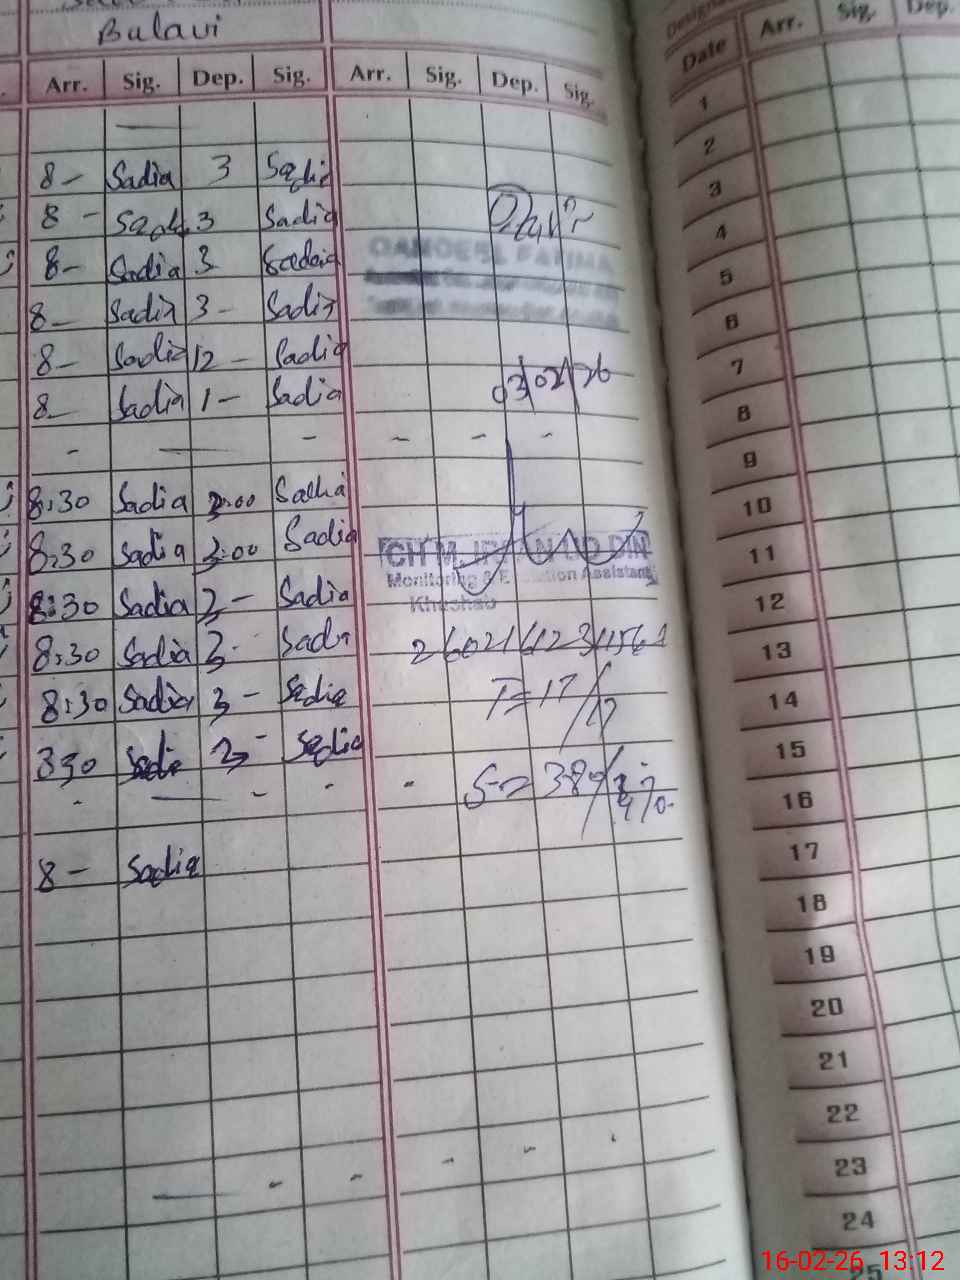 Balavi
Arr. Sig. Dep. Sig. Arr. Sig. Dep. Sig.
8 - Sadia 3 Sadia
8 - Sadia 3 Sadia
8 - Sadia 3 Sadia
8 - Sadia 3 - Sadia
8 - Sadia 12 - Sadia
8 - Sadia 1 - Sadia
8:30 Sadia 2:00 Sadia
8:30 Sadia 2:00 Sadia
8:30 Sadia 2 - Sadia
8:30 Sadia 2 - Sadia
8:30 Sadia 2 - Sadia
830 Sadia 2 - Sadia
8 - Sadia
FATIMA
03/02/26
CH M. IRFAN UD DIN
Monitoring & Evaluation Assistant
Khushab
T=17/17
Date Arr. Sig. Dep.
1
2
3
4
5
6
7
8
9
10
11
12
13
14
15
16
17
18
19
20
21
22
23
24
25
16-02-26 13:12